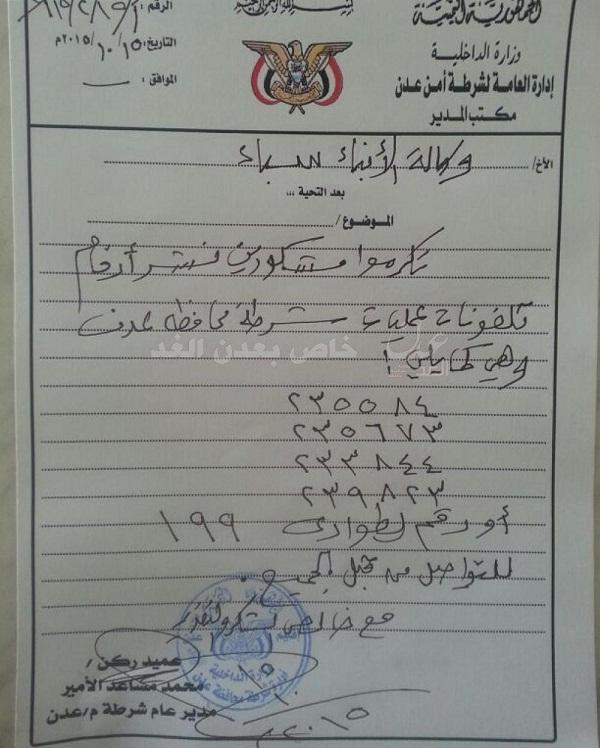 بسم الله الرحمن الرحيم
الجمهورية اليمنية
وزارة الداخلية
إدارة العامة لشرطة أمن عدن
مكتب المدير
الرقم:
التاريخ: ١٥/١٠/٢٠١٥م
الموافق:
الأخ/ وكالة الأنباء سباء
بعد التحية ...
الموضوع/
تكرموا مشكورين نشر أرقام
تلفونات عمليات شرطة محافظة عدن
وهي كما يلي:
خاص بعدن الغد
٢٣٥٥٨٤
٢٣٥٦٧٣
٢٣٣٨٤٤
٢٣٩٨٢٣
أو رقم الطوارئ ١٩٩
للتواصل من قبل الجميع.
مع خالص الشكر والتقدير
عميد ركن/
محمد مساعد الأمير
مدير عام شرطة م/عدن
٢٠١٥